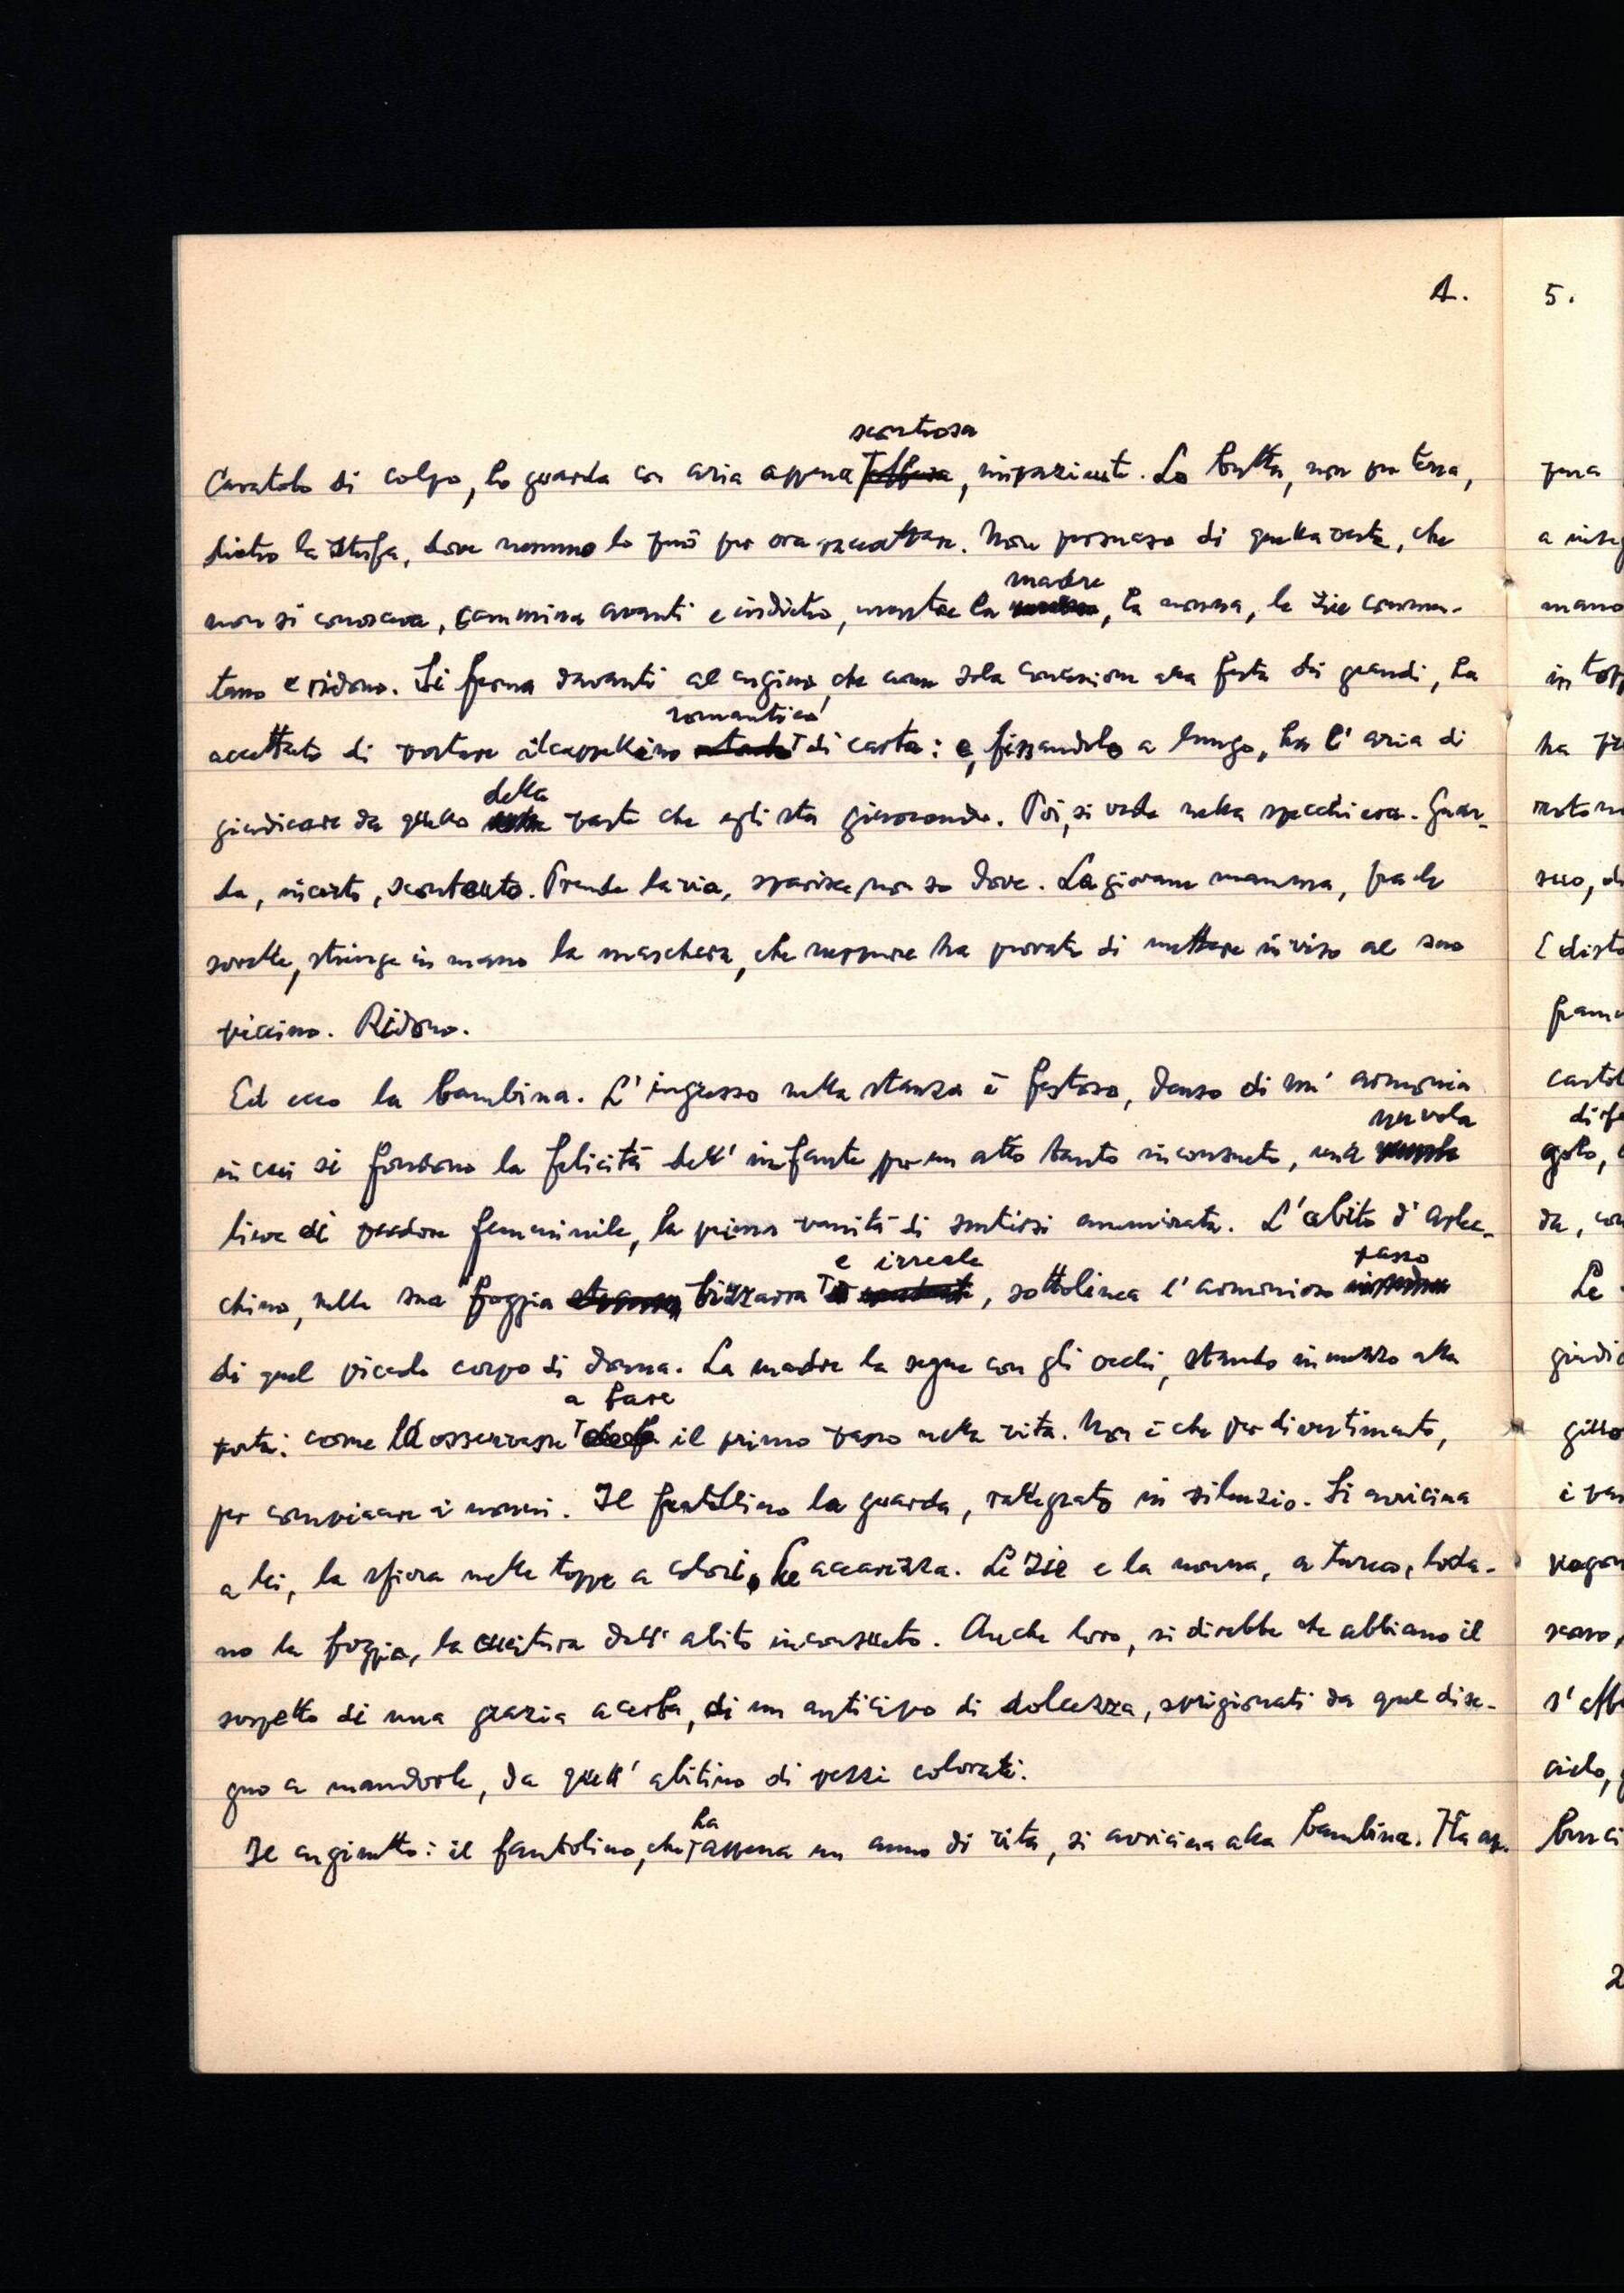 4.
scontrosa
Cavatolo di colpo, lo guarda con aria appena, impaziente. Lo butta, non per terra,
dietro la stufa, dove nessuno lo può per ora raccattare. Non persuaso di quella veste, che
madre
non si conosceva, cammina avanti e indietro, mentre la, la nonna, le zie commen-
tano e ridono. Si ferma davanti al cugino, che come sola concessione alla festa dei grandi, ha
romantico
accettato di portare il cappellino di carta: e, fissandolo a lungo, ha l'aria di
della
giudicare da quello parte che egli sta giuocando. Poi, si vede nella specchiera. Guar-
da, incerto, scontento. Prende la via, sparisce, non so dove. La giovane mamma, fra le
sorelle, stringe in mano la maschera, che neppure ha provato di mettere in viso al suo
piccino. Ridono.
Ed ecco la bambina. L'ingresso nella stanza è festoso, denso di un'armonia
nuvola
in cui si fondono la felicità dell'infante per un atto tanto inconsueto, una
lieve di pudore femminile, la prima vanità di sentirsi ammirata. L'abito d'Arlec-
e irreale passo
chino, nella sua foggia bizzarra, sottolinea l'armonioso
di quel piccolo corpo di donna. La madre la segue con gli occhi, stando in mezzo alla
a fare
porta: come la osservasse il primo passo nella vita. Non è che per divertimento,
per compiacere ai nonni. Il fratellino la guarda, rallegrato in silenzio. Si avvicina
a lei, la sfiora nelle toppe a colori, le accarezza. Le zie e la nonna, a turno, loda-
no la foggia, la cucitura dell'abito inconsueto. Anche loro, si direbbe che abbiano il
sospetto di una grazia acerba, di un anticipo di dolcezza, sprigionati da quel dise-
gno a mandorle, da quell'abitino di pezzi colorati.
ha
Il cuginetto: il fantolino, che appena un anno di vita, si avvicina alla bambina. Ha ap-
5.
a
mano
ha
da, con
Le